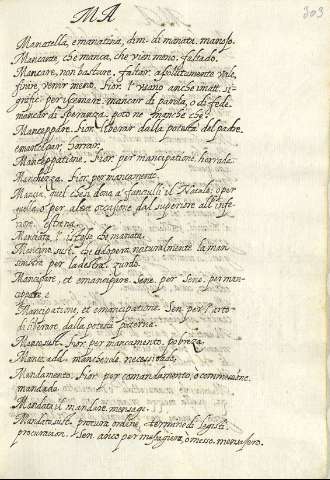 MA
303
Manatella, emanatina, dim. di manata, manoso.
Mancante, che manca, che vien meno. faltado.
Mancare, non bastare, faltar. assolutamente vale,
finire, venir meno, Fior. l'usano anche in att. si-
gnific. per iscemare. mancar di parola, o di fede.
mancar di speranza. poto ne mancha che.
Manceppare. Fior. liberar dalla potestà del padre.
emantcipar, horrar.
Manceppatione. Fior. per mancipatione. horrade.
Manchezza. Fior. per mancamento.
Mancia. quel che si dona a' fanciulli il Natale, o per
quella o per altra occasione dal superiore all' infe-
riore. estrena.
Manciata, l'istesso che manata.
Mancino sust. che adopera naturalmente la man
sinistra per la destra. zurdo.
Mancipare, et emancipare. Sene. per Sene. per man-
cipare. e
Mancipatione, et emancipatione. Sen. per l'atto
di liberare dalla potestà paterna.
Manco sust. Fior. per mancamento. pobreza.
Manco, ad. manchevole. necessidado,
Mandamento. Fior. per comandamento, o commissione.
mandado.
Mandata il mandare. mensage.
Mandato sust. procura, ordine, termine di legisti.
procuracion. Sen. anco per messagiero, o messo. mensajero.